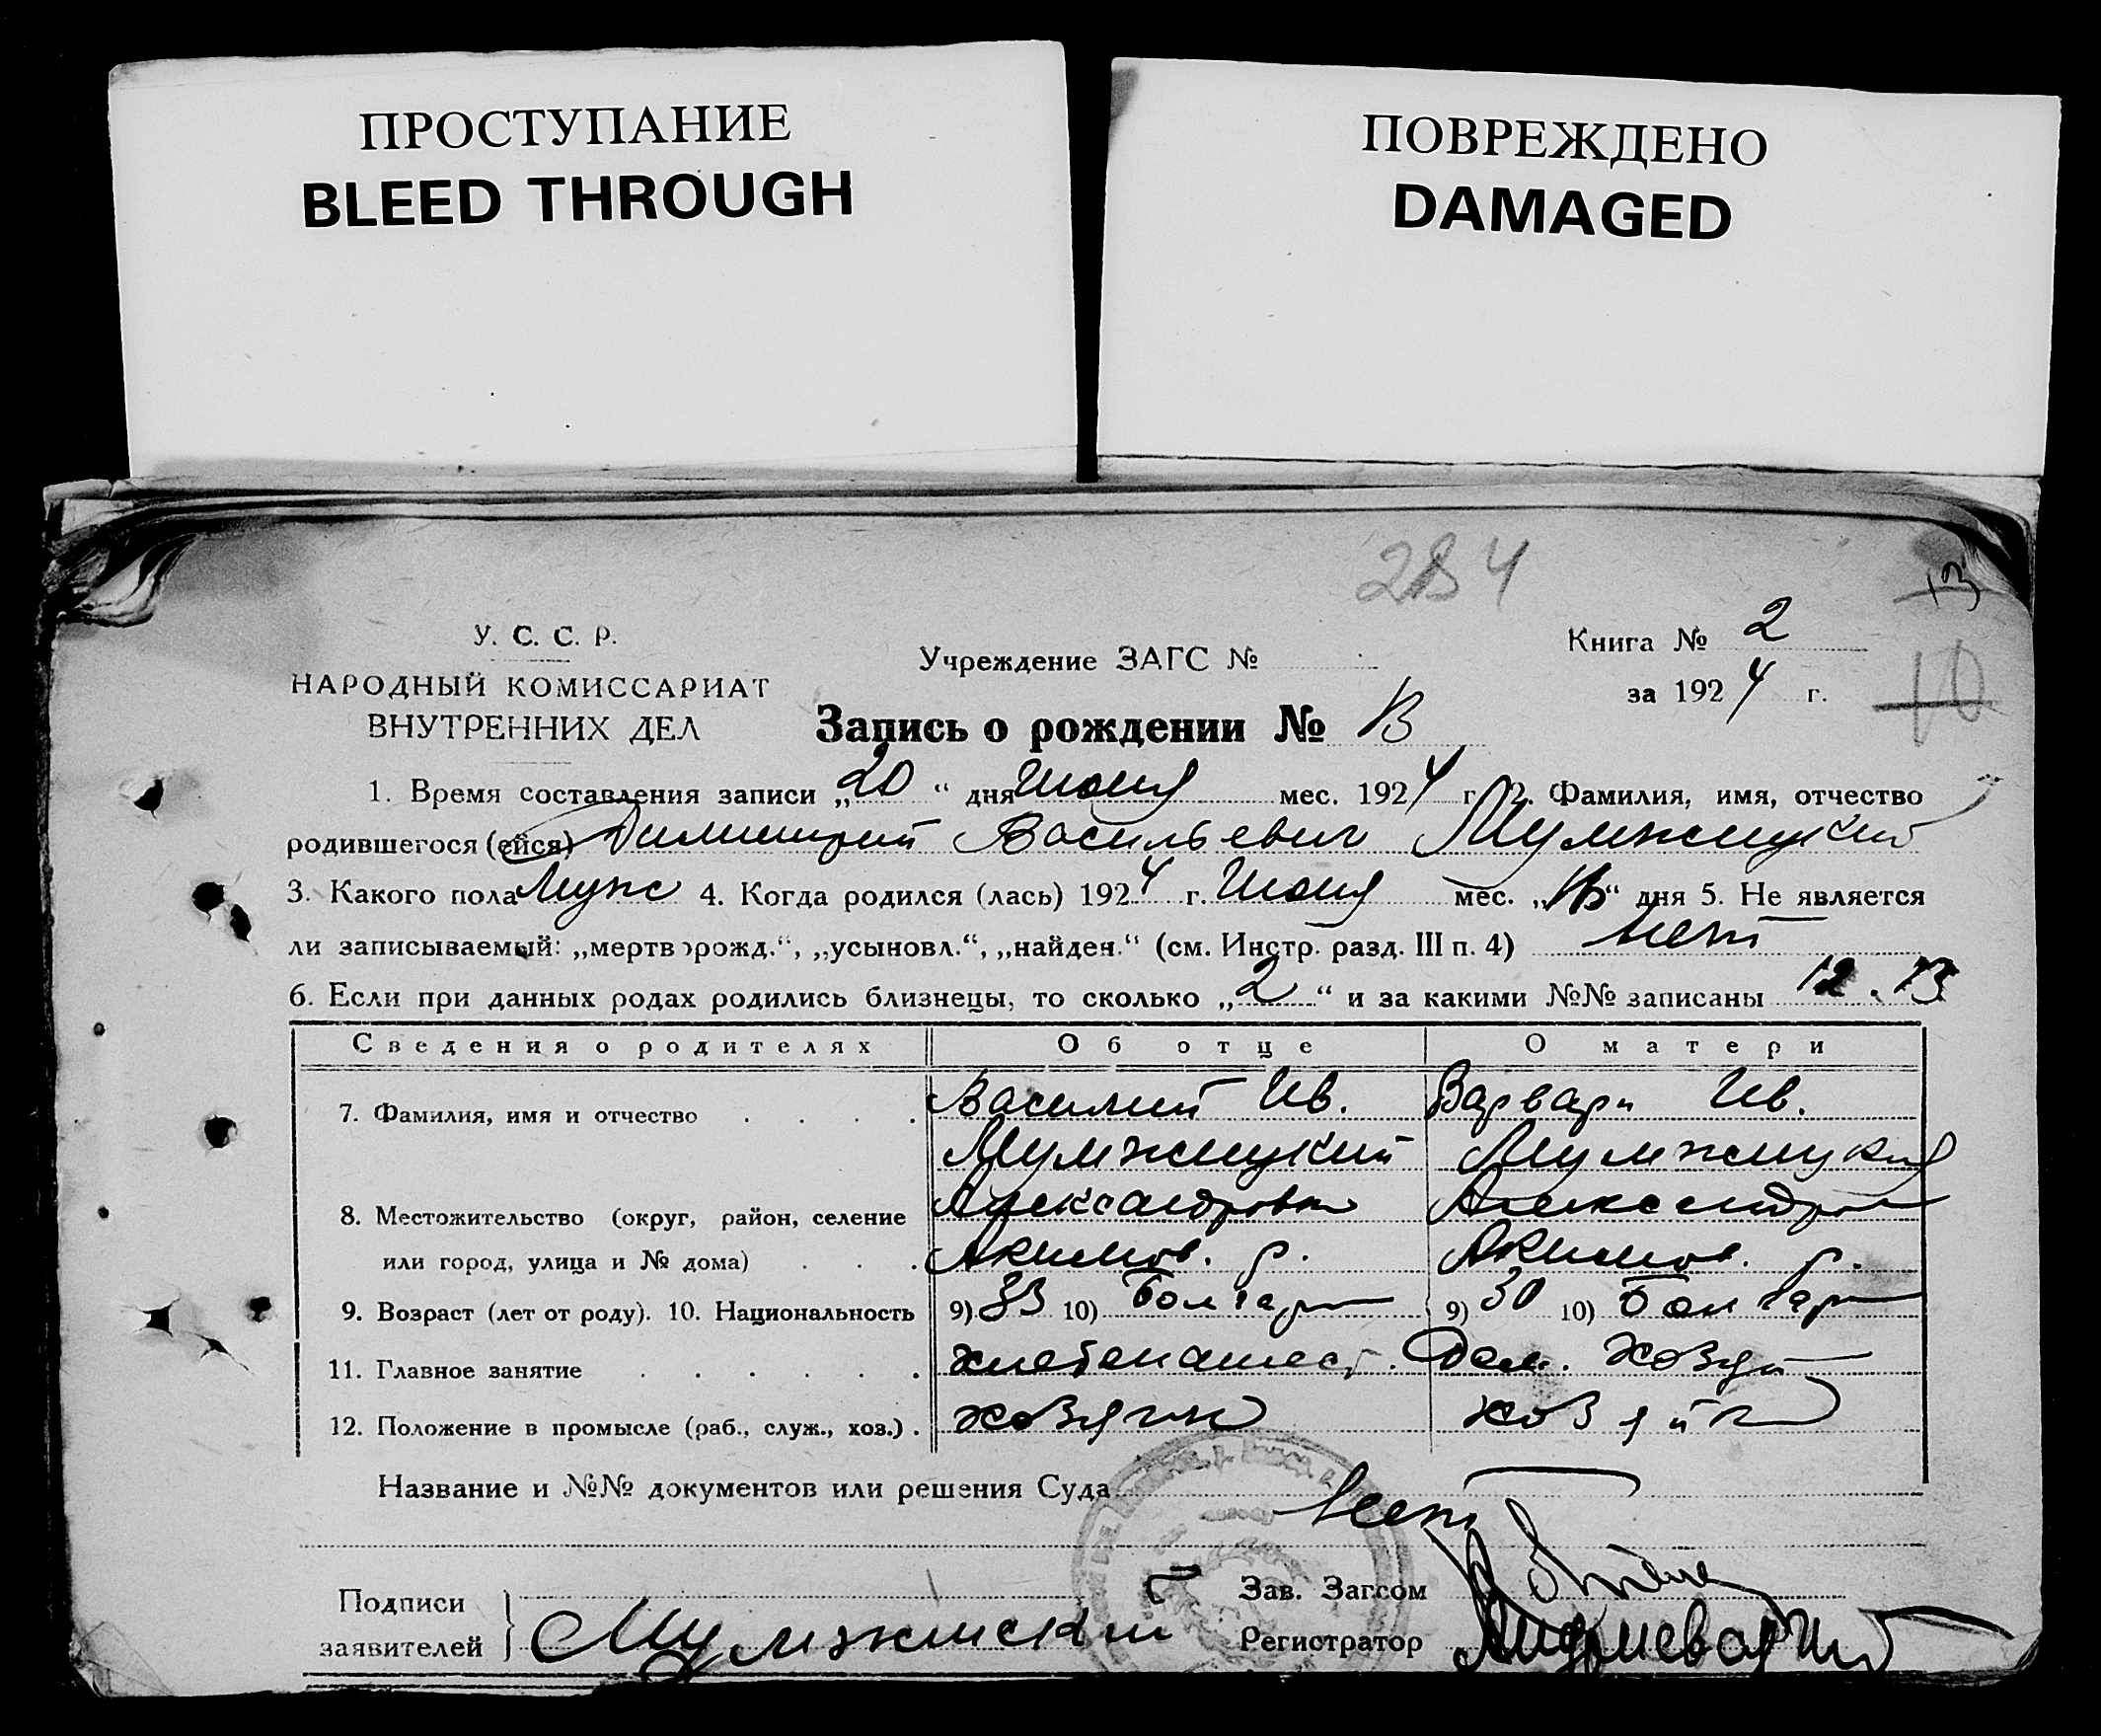 ПРОСТУПАНИЕ
BLEED THROUGH
ПОВРЕЖДЕНО
DAMAGED
284
13
У. С. С. Р.
НАРОДНЫЙ КОМИССАРИАТ
ВНУТРЕННИХ ДЕЛ
Учреждение ЗАГС №
Книга № 2
за 1924 г.
10
Запись о рождении № 13
1. Время составления записи „20“ дня Июня мес. 1924 г. 2. Фамилия, имя, отчество
родившегося (ейся) Димитрий Васильевич Мумжицкий
3. Какого пола Муж 4. Когда родился (лась) 1924 г. Июня мес. „“ дня 5. Не является
ли записываемый: „мертворожд.“, „усыновл.“, „найден.“ (см. Инстр. разд. III п. 4) нет
6. Если при данных родах родились близнецы, то сколько „2“ и за какими №№ записаны 12. 13
Сведения о родителях Об отце О матери
7. Фамилия, имя и отчество Василий Ив. Варвара Ив.
Мумжицкий Мумжицкая
8. Местожительство (округ, район, селение Александровка Александров
или город, улица и № дома) Акимов. р. Акимов. р.
9. Возраст (лет от роду). 10. Национальность 9) 33 10) Болгар 9) 30 10) Болгар
11. Главное занятие хлебопашест. Дом. хозяй
12. Положение в промысле (раб., служ., хоз.) хозяин хозяйк
Название и №№ документов или решения Суда нет
Подписи
заявителей Мумжиский
Зав. Загсом
Регистратор